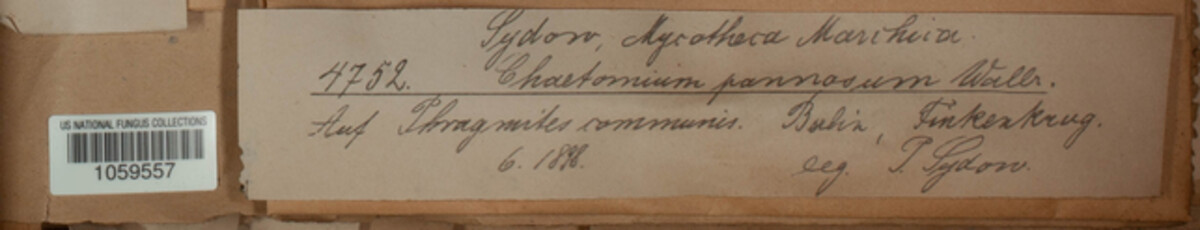 Sydow, Mycotheca Marchica.
4752. Chaetomium pannosum Wallr.
Auf Phragmites communis. Berlin, Finkenkrug.
6. leg. P. Sydow.
US NATIONAL FUNGUS COLLECTIONS
1059557